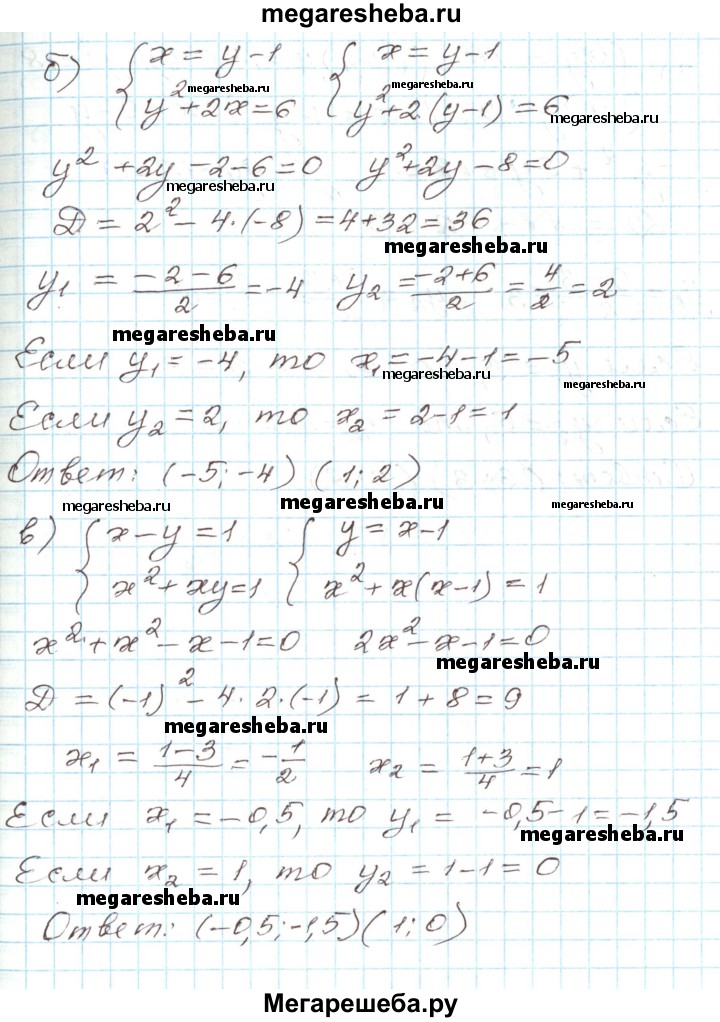 megaresheba.ru
б) { x = y - 1 { x = y - 1
megaresheba.ru megaresheba.ru
y² + 2x = 6 y² + 2·(y-1) = 6 megaresheba.ru
y² + 2y - 2 - 6 = 0 y² + 2y - 8 = 0
megaresheba.ru
Д = 2² - 4·(-8) = 4 + 32 = 36
megaresheba.ru
y₁ = (-2-6)/2 = -4 y₂ = (-2+6)/2 = 4/2 = 2
megaresheba.ru
Если y₁ = -4, то x₁ = -4-1 = -5
megaresheba.ru megaresheba.ru
Если y₂ = 2, то x₂ = 2-1 = 1
Ответ: (-5; -4) (1; 2)
megaresheba.ru megaresheba.ru megaresheba.ru
в) { x - y = 1 { y = x - 1
x² + xy = 1 x² + x(x-1) = 1
x² + x² - x - 1 = 0 2x² - x - 1 = 0
megaresheba.ru
Д = (-1)² - 4·2·(-1) = 1 + 8 = 9
megaresheba.ru
x₁ = (1-3)/4 = -1/2 x₂ = (1+3)/4 = 1
Если x₁ = -0,5, то y₁ = -0,5-1 = -1,5
megaresheba.ru
Если x₂ = 1, то y₂ = 1-1 = 0
megaresheba.ru
Ответ: (-0,5; -1,5) (1; 0)
Мегарешеба.ру